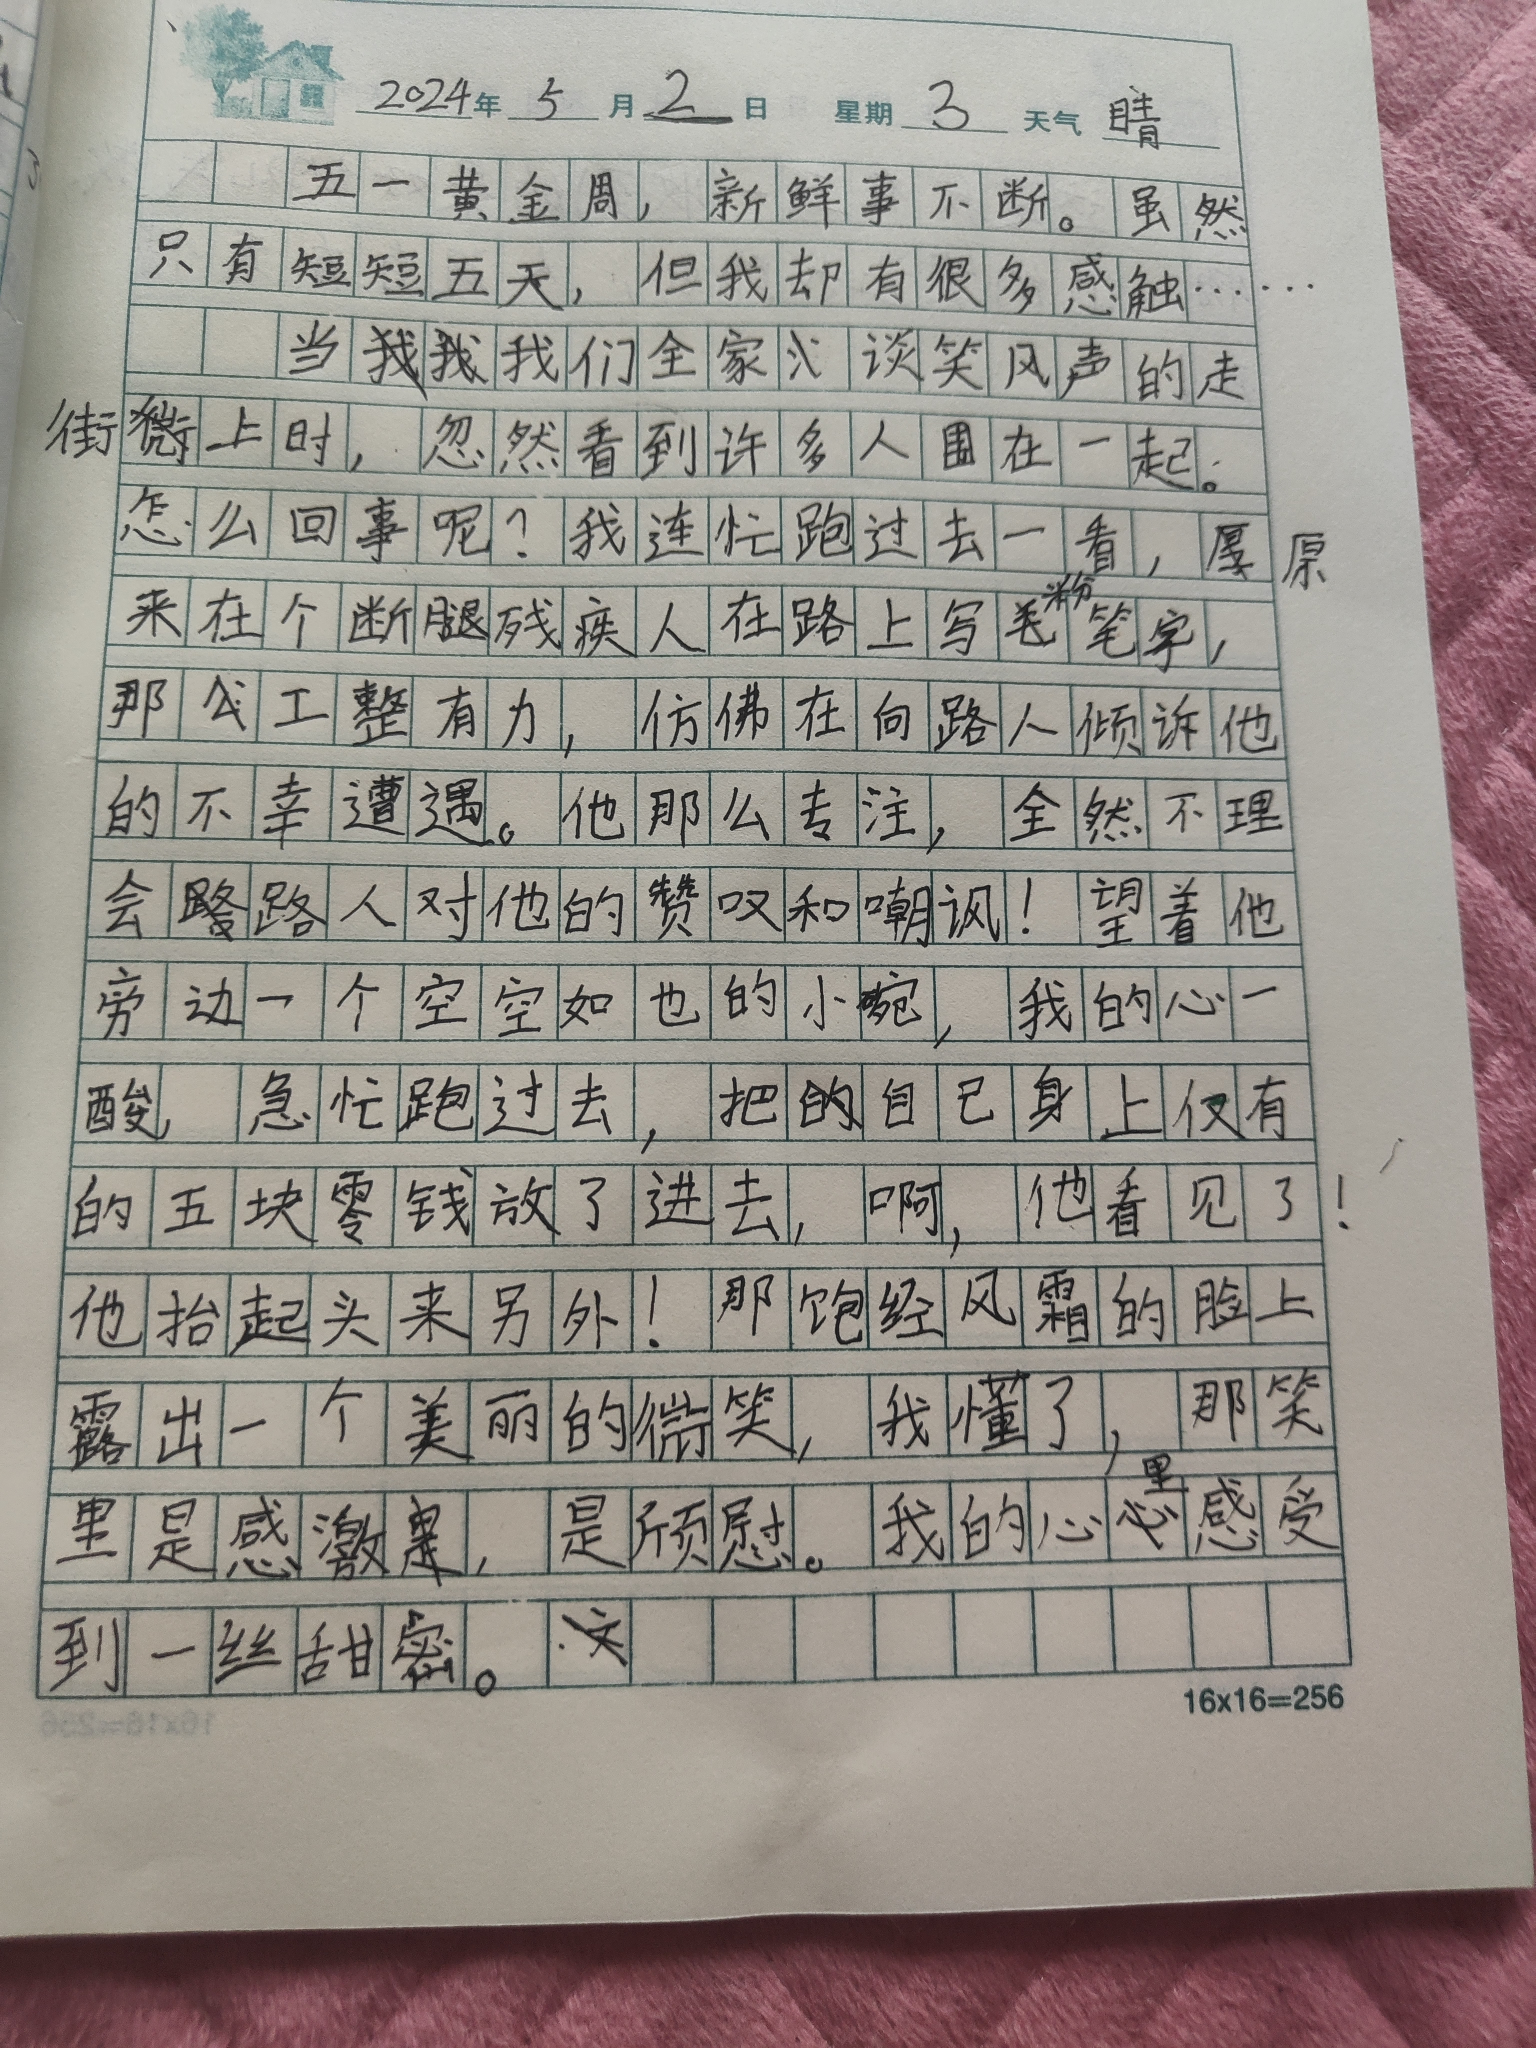 2024年 5 月 2 日 星期 3 天气 晴
五一黄金周，新鲜事不断。虽然
只有短短五天，但我却有很多感触……
当我们全家谈笑风声的走
街上时，忽然看到许多人围在一起。
怎么回事呢？我连忙跑过去一看，原
来在个断腿残疾人在路上写粉笔字，
那么工整有力，仿佛在向路人倾诉他
的不幸遭遇。他那么专注，全然不理
会路人对他的赞叹和嘲讽！望着他
旁边一个空空如也的小碗，我的心一
酸，急忙跑过去，把的自己身上仅有
的五块零钱放了进去，啊，他看见了！
他抬起头来另外！那饱经风霜的脸上
露出一个美丽的微笑，我懂了，那笑
里是感激，是欣慰。我的心里感受
到一丝甜密。
16x16=256